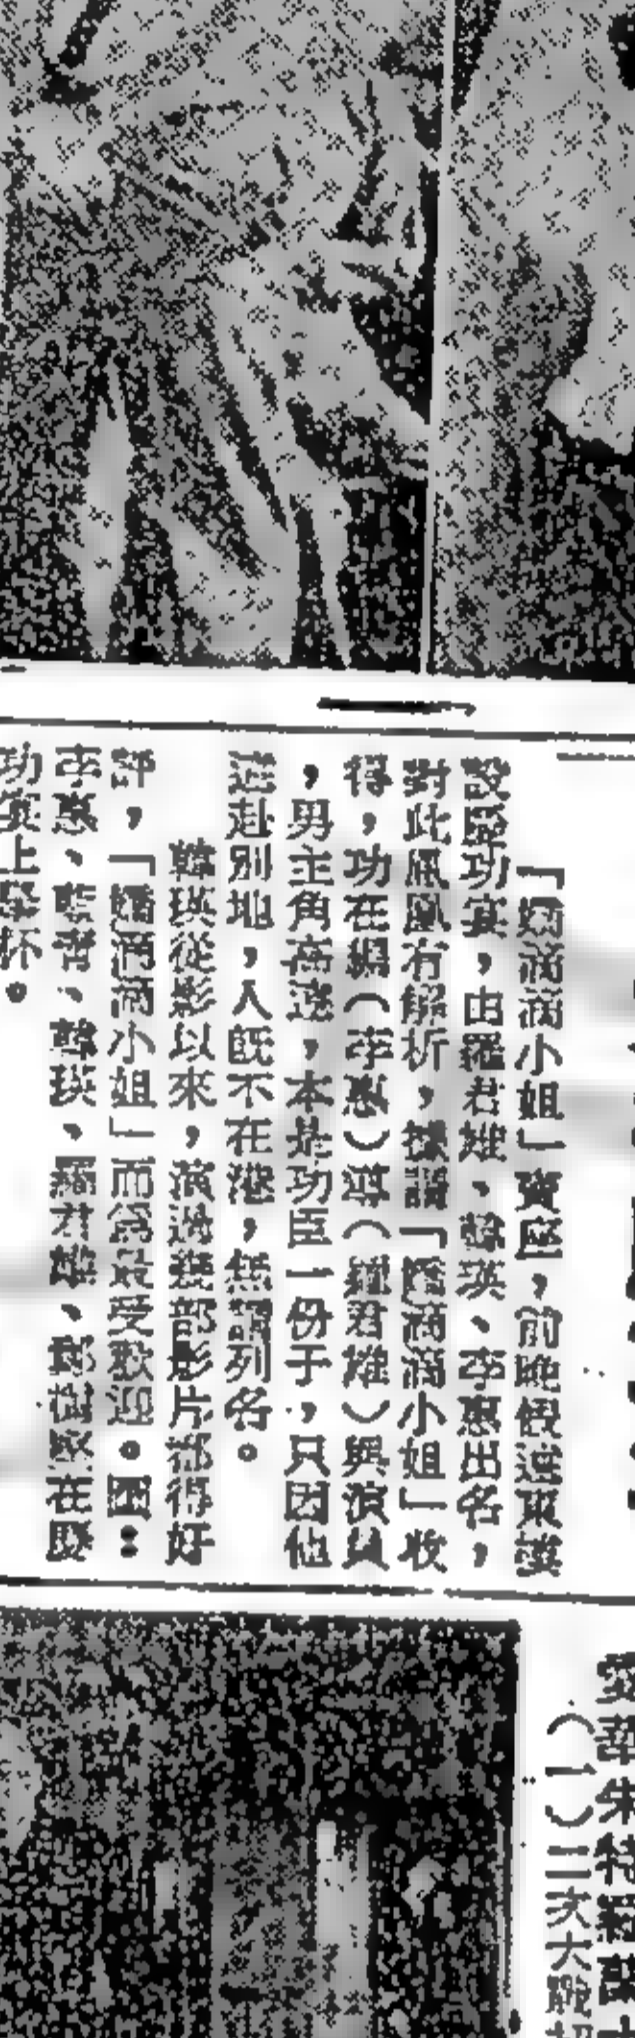 「嬌滴滴小姐」賣座，前晚假遠東
設慶功宴，由羅君雄、韓瑛、李惠出名，
對此鳳凰有解析，據謂「嬌滴滴小姐」收
得，功在編（李惠）導（羅君雄）與演員
，男主角高遠，本是功臣一份子，只因他
赴別地，人旣不在港，無謂列名。
韓瑛從影以來，演過幾部影片都得好
評，「嬌滴滴小姐」而爲最受歡迎。圖：
李惠、韓瑛、羅君雄、在慶
功宴上舉杯。
（一）二次大戰